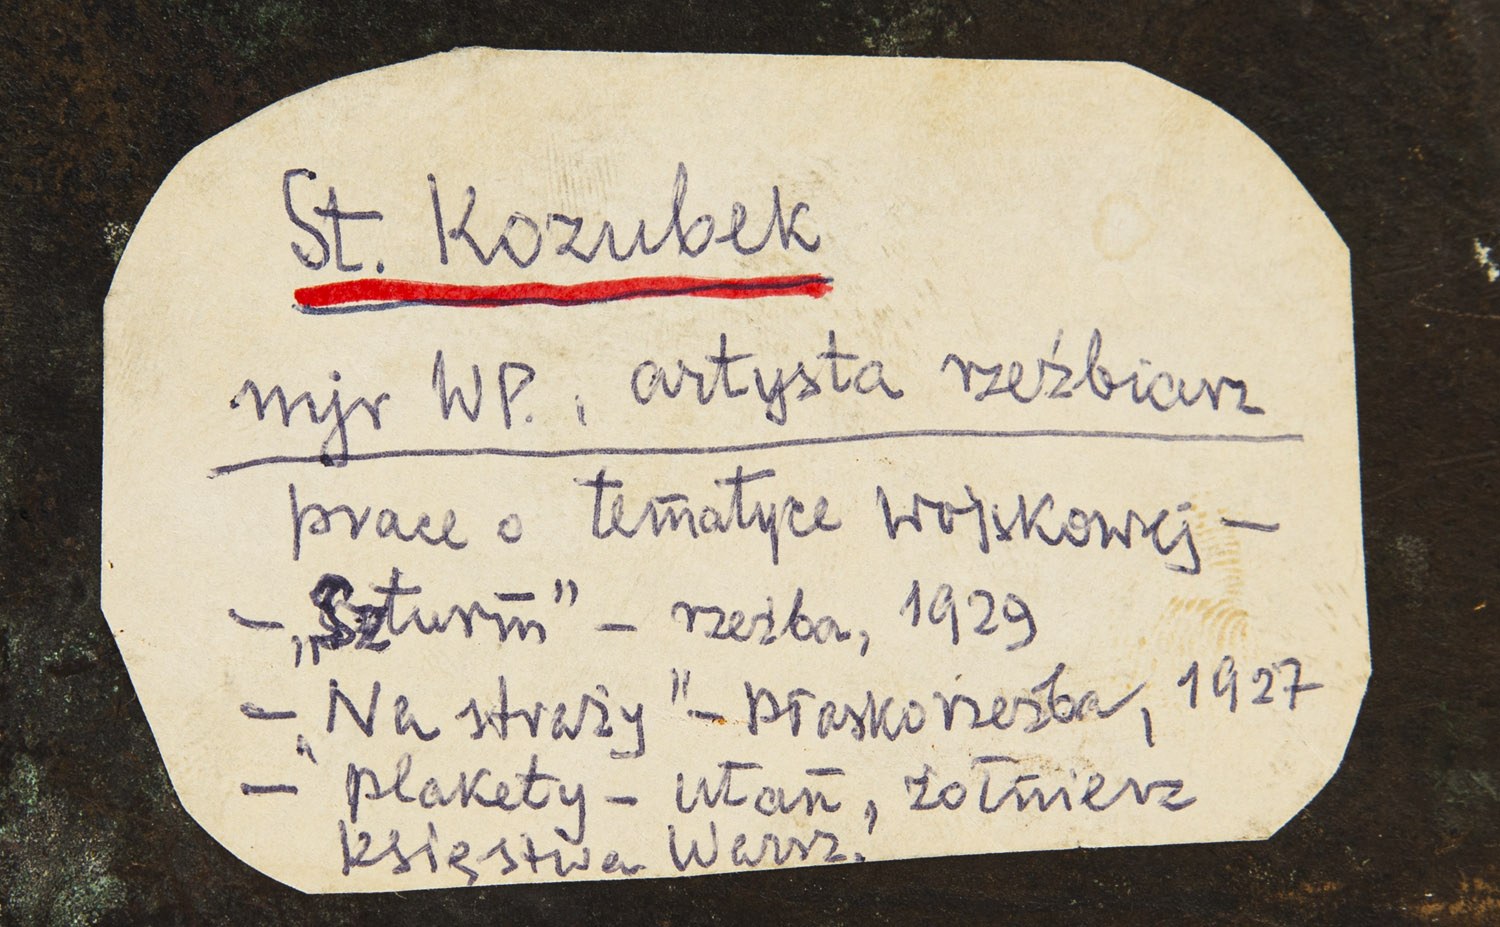 St. Kozubek
mjr WP., artysta rzeźbiarz
prace o tematyce wojskowej –
– „Szturm" – rzeźba, 1929
– „Na straży" – płaskorzeźba, 1927
– plakety – ułan, żołnierz
księstwa Warsz.